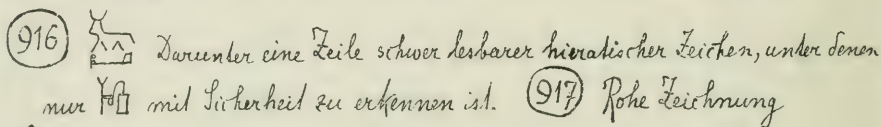 916 Darunter eine Zeile schwer lesbarer hieratischer Zeichen, unter denen
nur mit Sicherheit zu erkennen ist. 917 Rohe Zeichnung